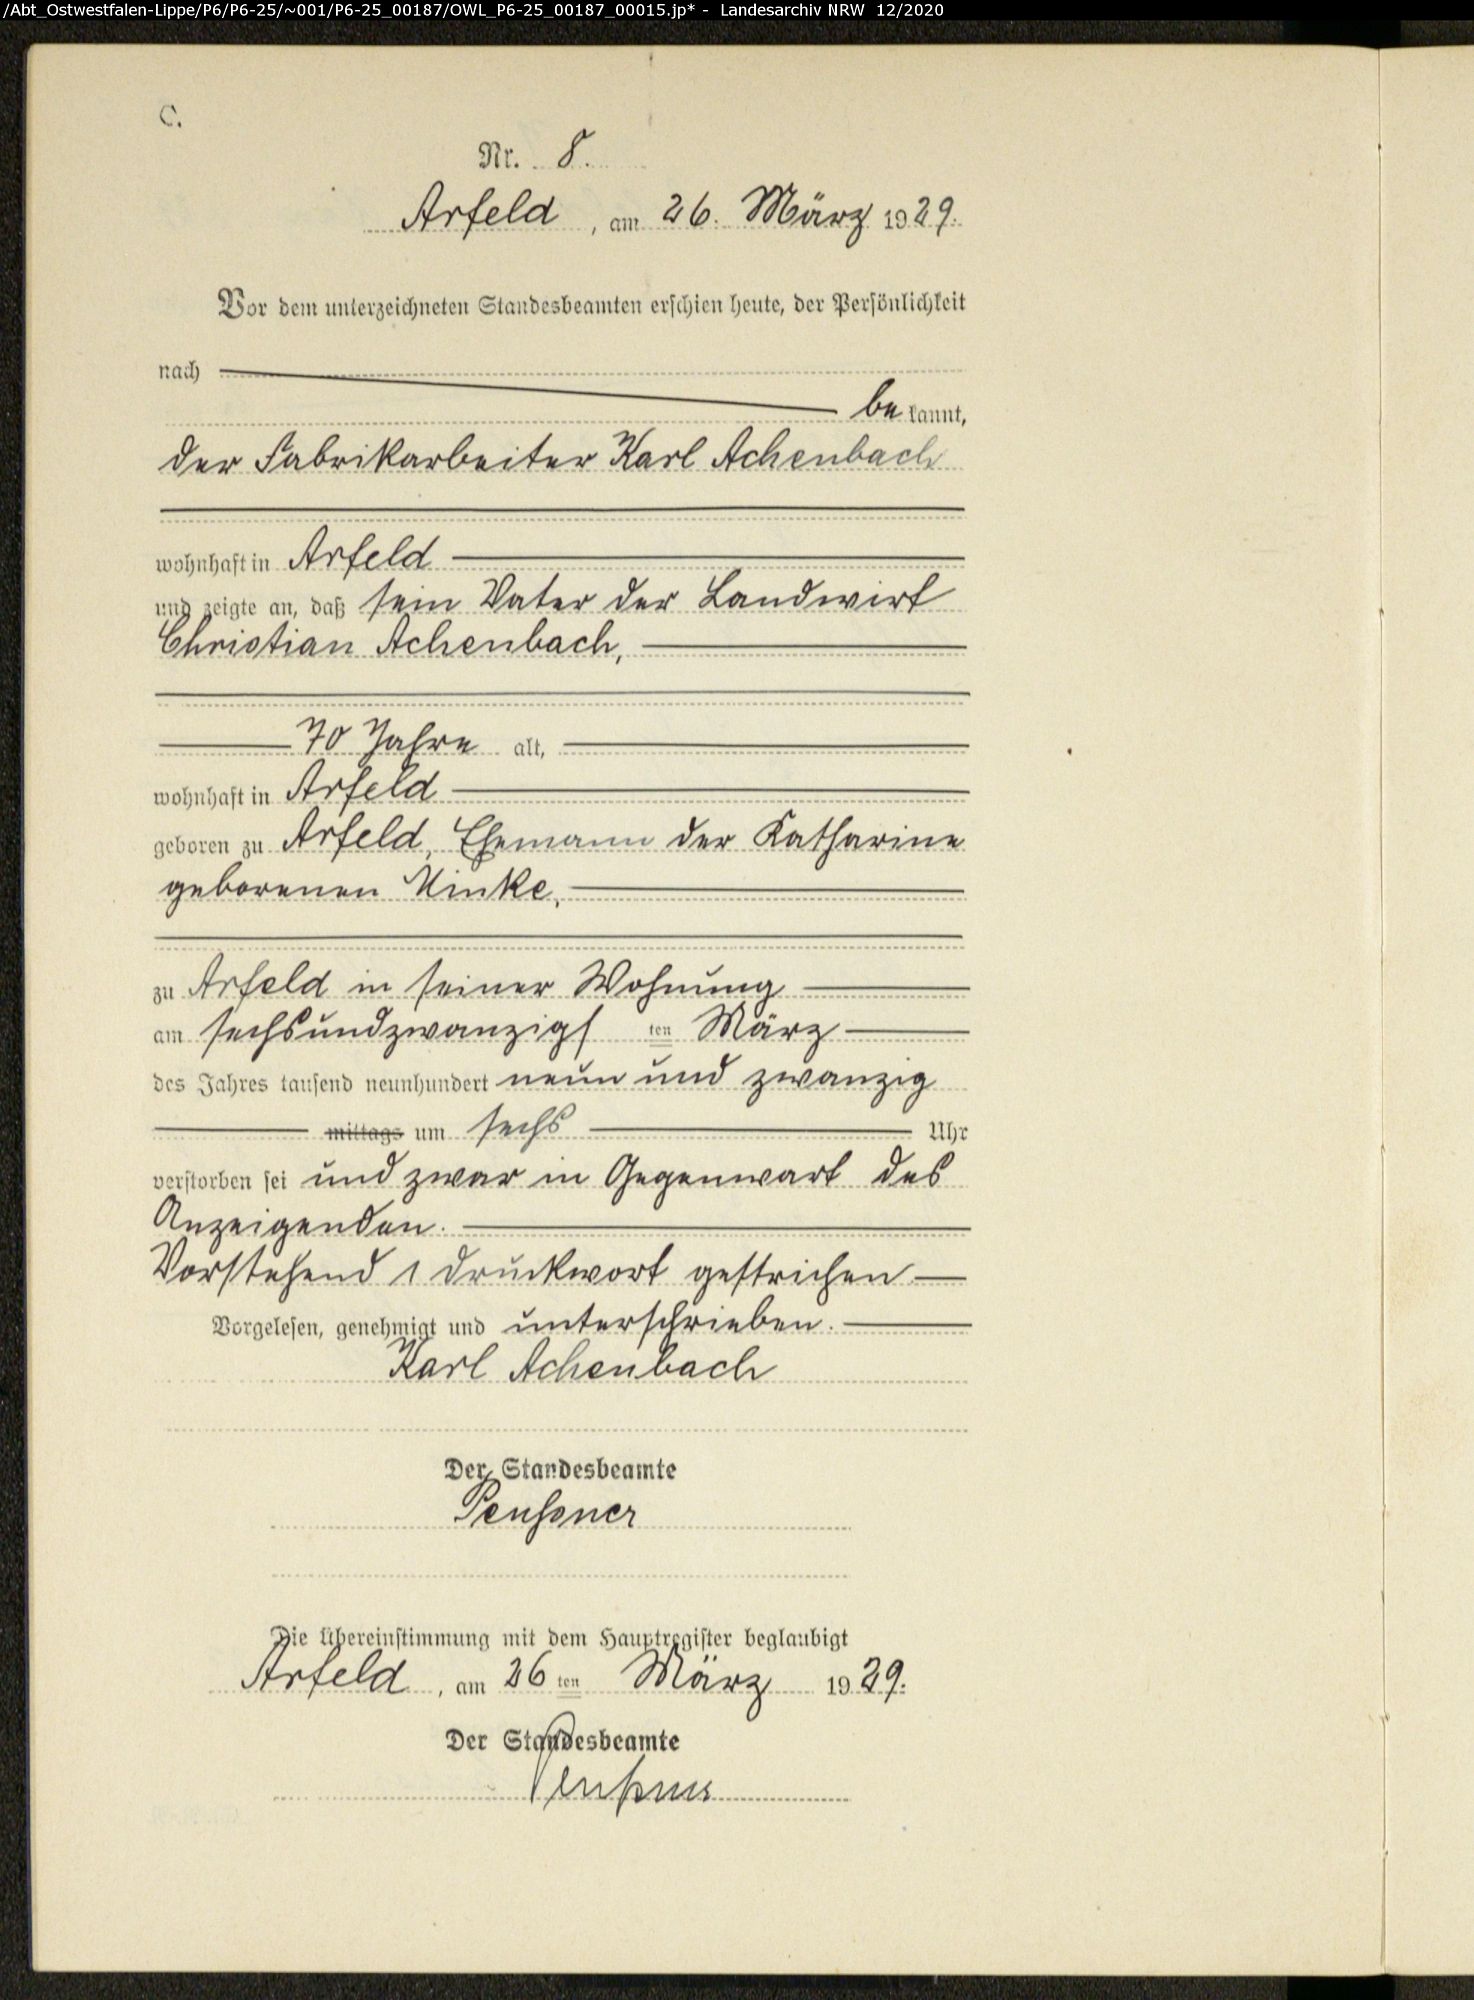 /Abt_Ostwestfalen-Lippe/P6/P6-25/~001/P6-25_00187/OWL_P6-25_00187_00015.jp* - Landesarchiv NRW 12/2020
C.
Nr. 8.
Arfeld, am 26. März 1929.
Vor dem unterzeichneten Standesbeamten erschien heute, der Persönlichkeit
nach
be kannt,
der Fabrikarbeiter Karl Achenbach
wohnhaft in Arfeld
und zeigte an, daß sein Vater der Landwirt
Christian Achenbach,
70 Jahre alt,
wohnhaft in Arfeld
geboren zu Arfeld, Ehemann der Katharine
geborenen
zu Arfeld in seiner Wohnung
am sechsundzwanzigs ten März
des Jahres tausend neunhundert neun und zwanzig
mittags um sechs Uhr
verstorben sei und zwar in Gegenwart des
Anzeigenden.
Vorstehend 1 Druckwort gestrichen
Vorgelesen, genehmigt und unterschrieben.
Karl Achenbach
Der Standesbeamte
Die Übereinstimmung mit dem Hauptregister beglaubigt
Arfeld, am 26 ten März 1929.
Der Standesbeamte